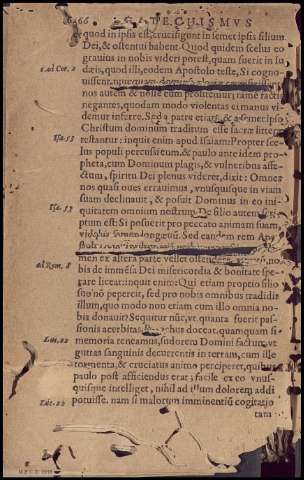 TECHISMVS
quod in ipsis est, crucifigunt in semetipsis filium
Dei, & ostentui habent. Quod quidem scelus eo
grauius in nobis videri potest, quam fuerit in Iu
1. ad Cor. 2
dæis, quod illi, eodem Apostolo teste, Si cogno-
uissent, nunquam
nos autem & nosse eum profitemur, tamē factis
negantes, quodam modo violentas ei manus vi-
demur inferre. Sed a patre etiam, & a semetipso
Christum dominum traditum esse sacræ litteræ
Isa. 53
testantur: inquit enim apud Isaiam: Propter sce-
lus populi percussi eum, & paulo ante idem pro-
pheta, cum Dominum plagis, & vulneribus affe-
ctum, spiritu Dei plenus videret, dixit: Omnes
nos quasi oues errauimus, vnusquisque in viam
suam declinauit, & posuit Dominus in eo ini-
Isa. 53
quitatem omnium nostrum. De filio autem scri-
ptum est: Si posuerit pro peccato animam suam,
videbit semen longeuū. Sed eandem rem Apo
stolus
men ex altera parte vellet ostendere, nos
ad Rom. 8
bis de immēsa Dei misericordia & bonitate spe-
rare liceat: inquit enim: Qui etiam proprio filio
suo nō pepercit, sed pro nobis omnibus tradidit
illum, quo modo non etiam cum illo omnia no-
bis donauit? Sequitur nūc, vt quanta fuerit pas-
sionis acerbitas, Parochus doceat. quamquam si
Luc. 22
memoria teneamus, sudorem Domini factum, vt
guttas sanguinis decurrentis in terram, cum ille
tormenta, & cruciatus animo perciperet, quibus
paulo post afficiendus erat; facile ex eo vnus-
quisque intelliget, nihil ad illum dolorem addi
Luc. 22
potuisse. nam si malorum imminentiū cogitatio
tana